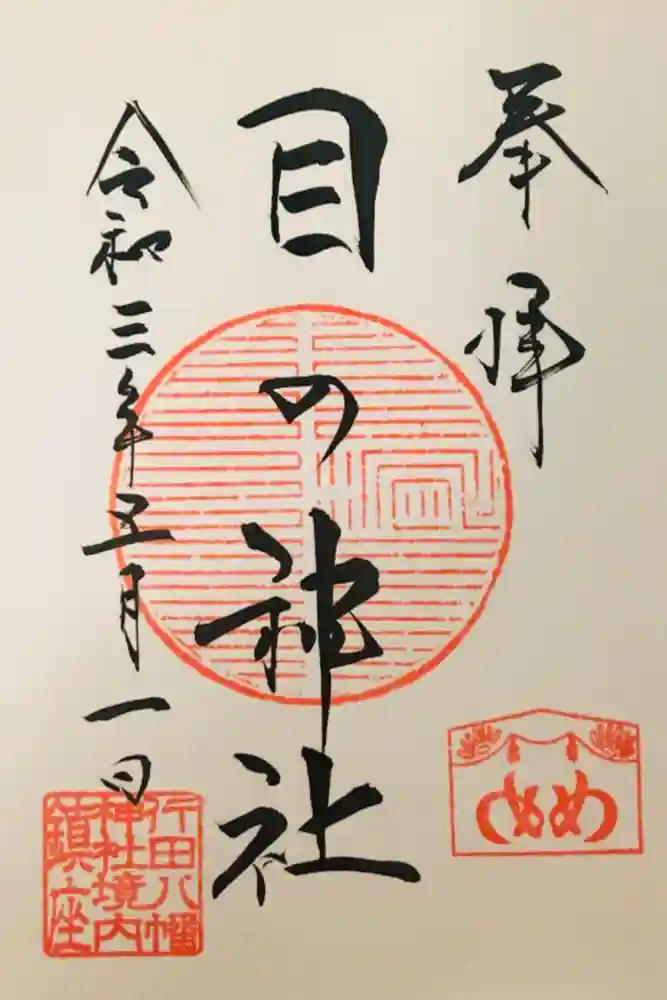 奉拝
目の神社
令和三年五月一日
めめ
行田八幡
神社境内
鎮座